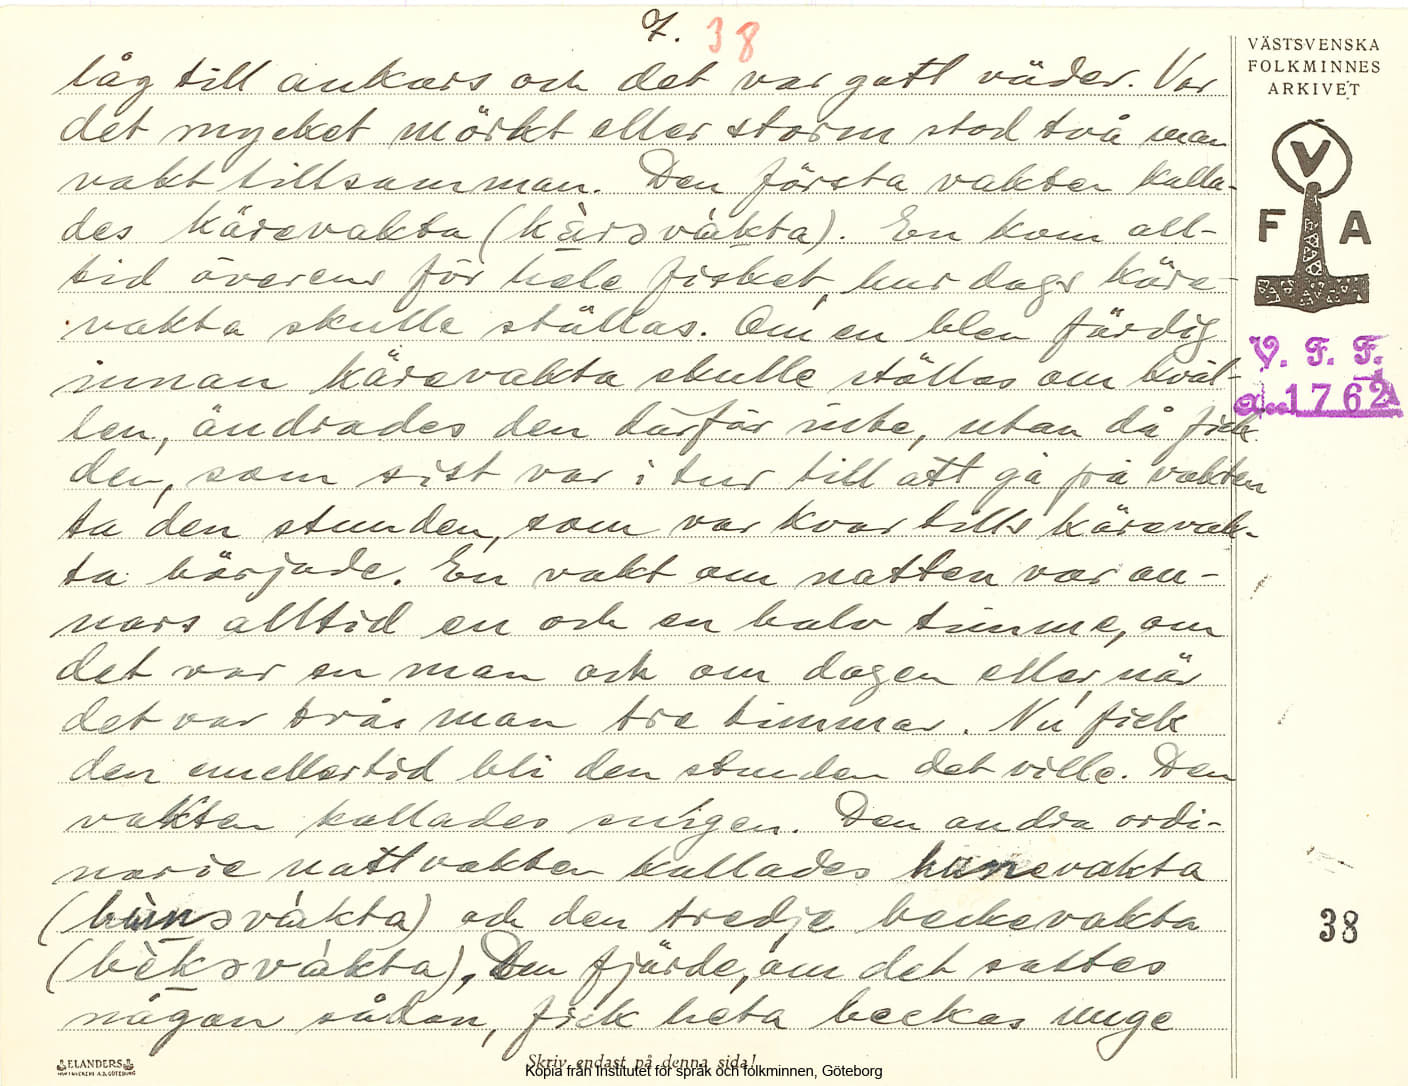 7. 38
låg till ankars och det var gott väder. Var
det mycket mörkt eller storm stod två man
vakt tillsamman. Den första vakten kalla-
des kärevakta (kàrəvàkta). En kom all-
tid överens för hele fisket, hur dags käre-
vakta skulle ställas. Om en blev färdig
innan kärevakta skulle ställas om kväl-
len, ändrades den därför inte, utan då fick
den, som sist var i tur till att gå på vakten
ta den stunden, som var kvar tills kärevak-
ta började. En vakt om natten var an-
nars alltid en och en halv timme, om
det var en man och om dagen eller när
det var två man tre timmar. Nu fick
den emellertid bli den stunden det ville. Den
vakten kallades
Den andra ordi-
narie nattvakten kallades hunevakta
(hùnəvàkta) och den tredje beckevakta
(bèkəvàkta). Den fjärde, om det sattes
någon sådan, fick heta beckas unge
VÄSTSVENSKA
FOLKMINNES
ARKIVET
V
F A
V. F. F.
a..1762
38
ELANDERS
Skriv endast på denna sida!
Kopia från Institutet för språk och folkminnen, Göteborg